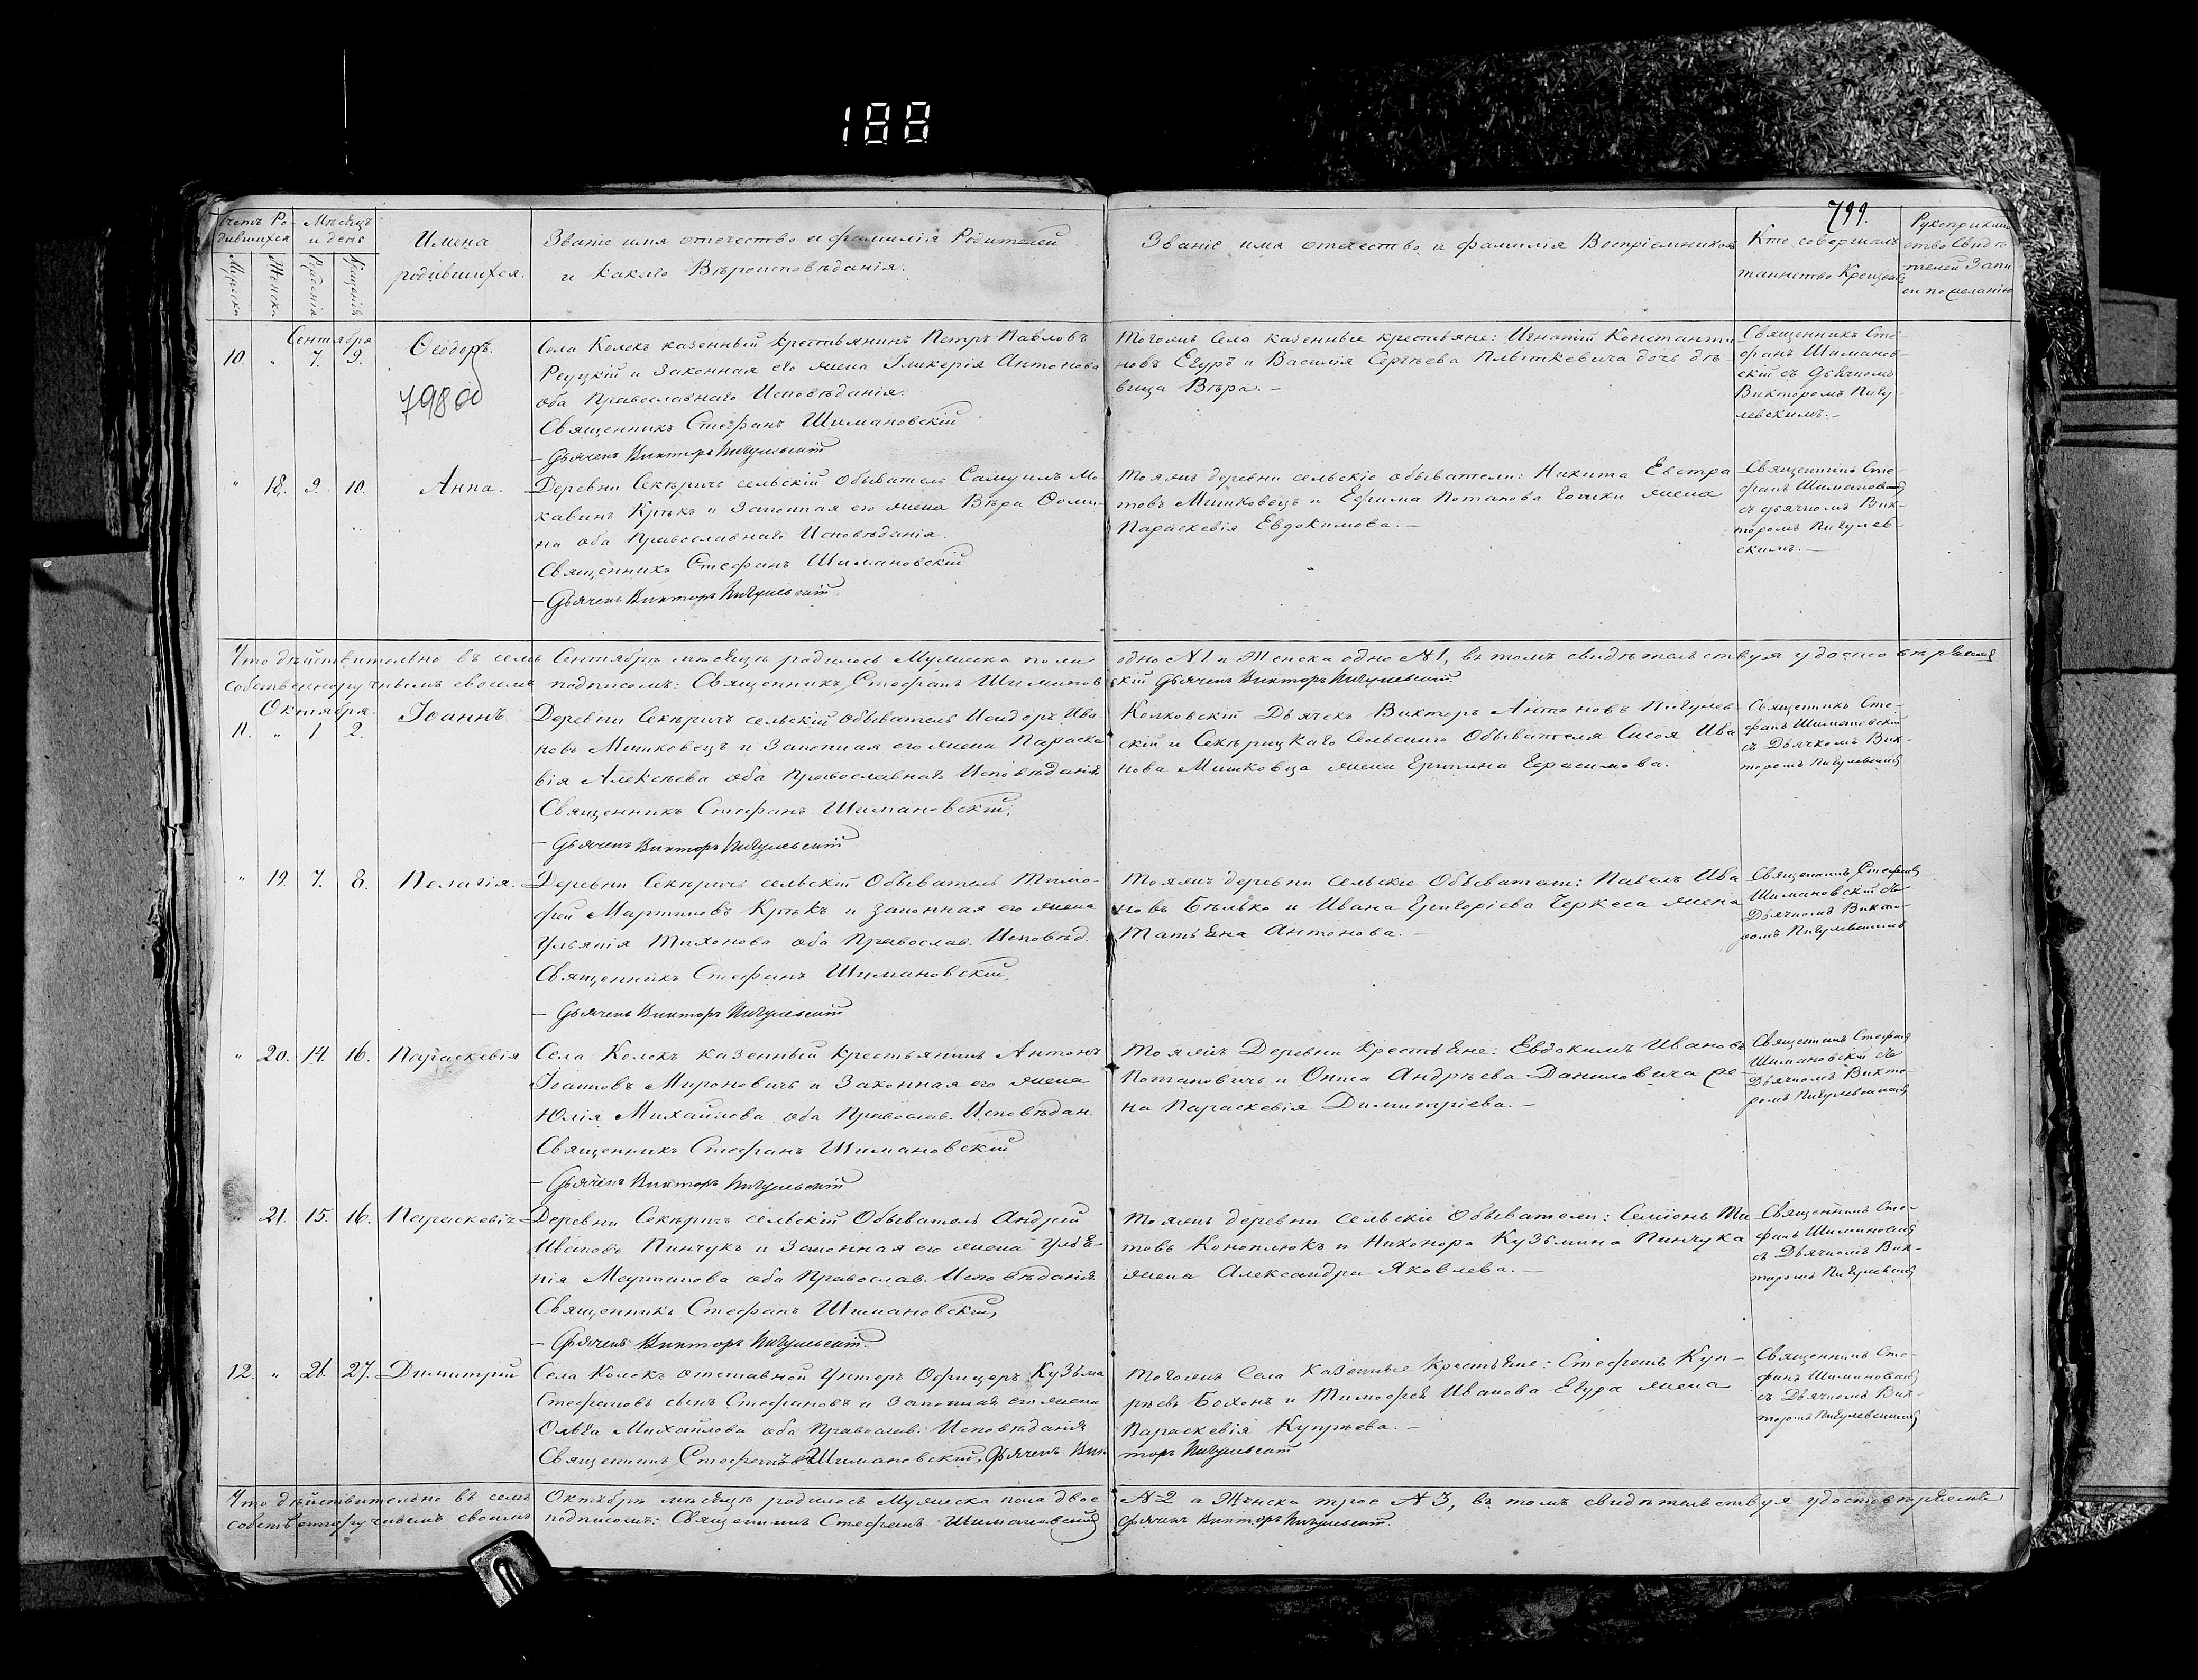 188
799.
Счетъ Ро-
дившихся
Мѣсяцъ
и день
Имена
родившихся.
Званіе имя отечество и фамилія Родителей
и какого Вѣроисповѣданія.
Званіе имя отечество и фамилія Воспріемниковъ
Кто совершалъ
таинство Крещенія
Рукоприклад
ство Свидѣ
телей Запи
си по желанію
Мужска
Женска
Рожденія
Крещенія
Сентября
10. " 7. 9.
Ѳеодоръ.
798 об
Села Колокъ казенный крестьянинъ Петръ Павловъ
Рецкій и Законная его жена Гликерія Антонова
оба Православнаго Исповѣданія.
Священникъ Стефанъ Шимановскій
– Дьячекъ Викторъ Пигулевскій
Тогожъ Села казенные крестьяне: Игнатій Константи
новъ Егуръ и Василія Сергѣева Плыткевича дочь дѣ-
вица Вѣра. –
Священникъ Сте-
фанъ Шиманов-
скій съ Дьячкомъ
Викторомъ Пигу-
левскимъ. –
" 18. 9. 10.
Анна.
Деревни Секѣричъ сельскій Обыватель Самуилъ Мо-
кавинъ Крѣкъ и Законная его жена Вѣра Ѳоми-
на оба Православнаго Исповѣданія.
Священникъ Стефанъ Шимановскій
– Дьячекъ Викторъ Пигулевскій.
Тояжъ деревни сельскіе обыватели: Никита Евстра
товъ Мишковецъ и Ефима Потапова жена
Параскевія Евдокимова. –
Священникъ Сте-
фанъ Шимановскій
съ дьячкомъ Вик-
торомъ Пигулев-
скимъ. –
Что дѣйствительно въ семъ Сентябрѣ мѣсяцѣ родилось Мужеска пола одно №1 и Женска одно №1, въ томъ свидѣтельствуя удостовѣряемъ
собственноручнымъ своимъ подписомъ: Священникъ Стефанъ Шиманов скій Дьячекъ Викторъ Пигулевскій.
Октября.
11. " 1 2.
Іоаннъ.
Деревни Секѣричъ сельскій обыватель Исидоръ Ива
новъ Мишковецъ и Законная его жена Параске
вія Алексѣева оба Православнаго Исповѣданія
Священникъ Стефанъ Шимановскій,
– Дьячекъ Викторъ Пигулевскій
Колковскій Дьячекъ Викторъ Антоновъ Пигулев-
скій и Секѣрицкаго Сельскаго Обывателя Сисоя Ива
нова Мишковца жена Ерипина Герасимова.
Священникъ Сте-
фанъ Шимановскій
съ Дьячкомъ Вик-
торомъ Пигулевскимъ
" 19. 7. 8.
Пелагія.
Деревни Секѣричъ сельскій Обыватель Тимо-
фей Мартиновъ Крѣкъ и законная его жена
Ульянія Тихонова оба Православ. Исповѣд.
Священникъ Стефанъ Шимановскій,
– Дьячекъ Викторъ Пигулевскій
Тояжъ деревни сельскіе Обыватели: Павелъ Ива
новъ Бѣлько и Ивана Григоріева Черкеса жена
Татьяна Антонова. –
Священникъ Стефанъ
Шимановскій съ
Дьячкомъ Викто-
ромъ Пигулевскимъ
" 20. 14. 16.
Параскевія
Села Колокъ казенный крестьянинъ Антонъ
Іоанновъ Мироновичъ и Законная его жена
Юлія Михайлова оба Православ. Исповѣдан.
Священникъ Стефанъ Шимановскій
– Дьячекъ Викторъ Пигулевскій
Тояжъ Деревни Крестьяне: Евдокимъ Ивановъ
Потаповичъ и Ониса Андрѣева Даниловича же-
на Параскевія Димитріева. –
Священникъ Стефанъ
Шимановскій съ
Дьячкомъ Викто-
ромъ Пигулевскимъ
" 21. 15. 16.
Параскевія
Деревни Секѣричъ сельскій Обыватель Андрей
Ивановъ Пинчукъ и Законная его жена Улья-
нія Мартинова оба Православ. Исповѣданія
Священникъ Стефанъ Шимановскій,
– Дьячекъ Викторъ Пигулевскій.
Тояжъ деревни сельскіе Обыватели: Семіонъ Ти
товъ Коноплюкъ и Никонора Кузьмина Пинчука
жена Александра Яковлева. –
Священникъ Сте-
фанъ Шимановскій
съ Дьячкомъ Вик-
торомъ Пигулевскимъ
12. " 26. 27.
Димитрій
Села Колокъ отставной Унтеръ Офицеръ Кузьма
Стефановъ сынъ Стефановъ и Законная его жена
Ольга Михайлова оба Православ. Исповѣданія
Священникъ Стефанъ Шимановскій, Дьячекъ Вик
торъ Пигулевскій
Тогожъ Села Казенные Крестьяне: Стефанъ Куп-
рѣевъ Бохонъ и Тимофея Иванова Егура жена
Параскевія Купрѣева. –
Священникъ Сте-
фанъ Шимановскій
съ Дьячкомъ Вик-
торомъ Пигулевскимъ
Что дѣйствительно въ семъ Октябрѣ мѣсяцѣ родилось Мужеска пола двое №2 а Женска трое №3, въ томъ свидѣтельствуя удостовѣряемъ
собственноручнымъ своимъ подписомъ: Священникъ Стефанъ Шимановскій Дьячекъ Викторъ Пигулевскій.